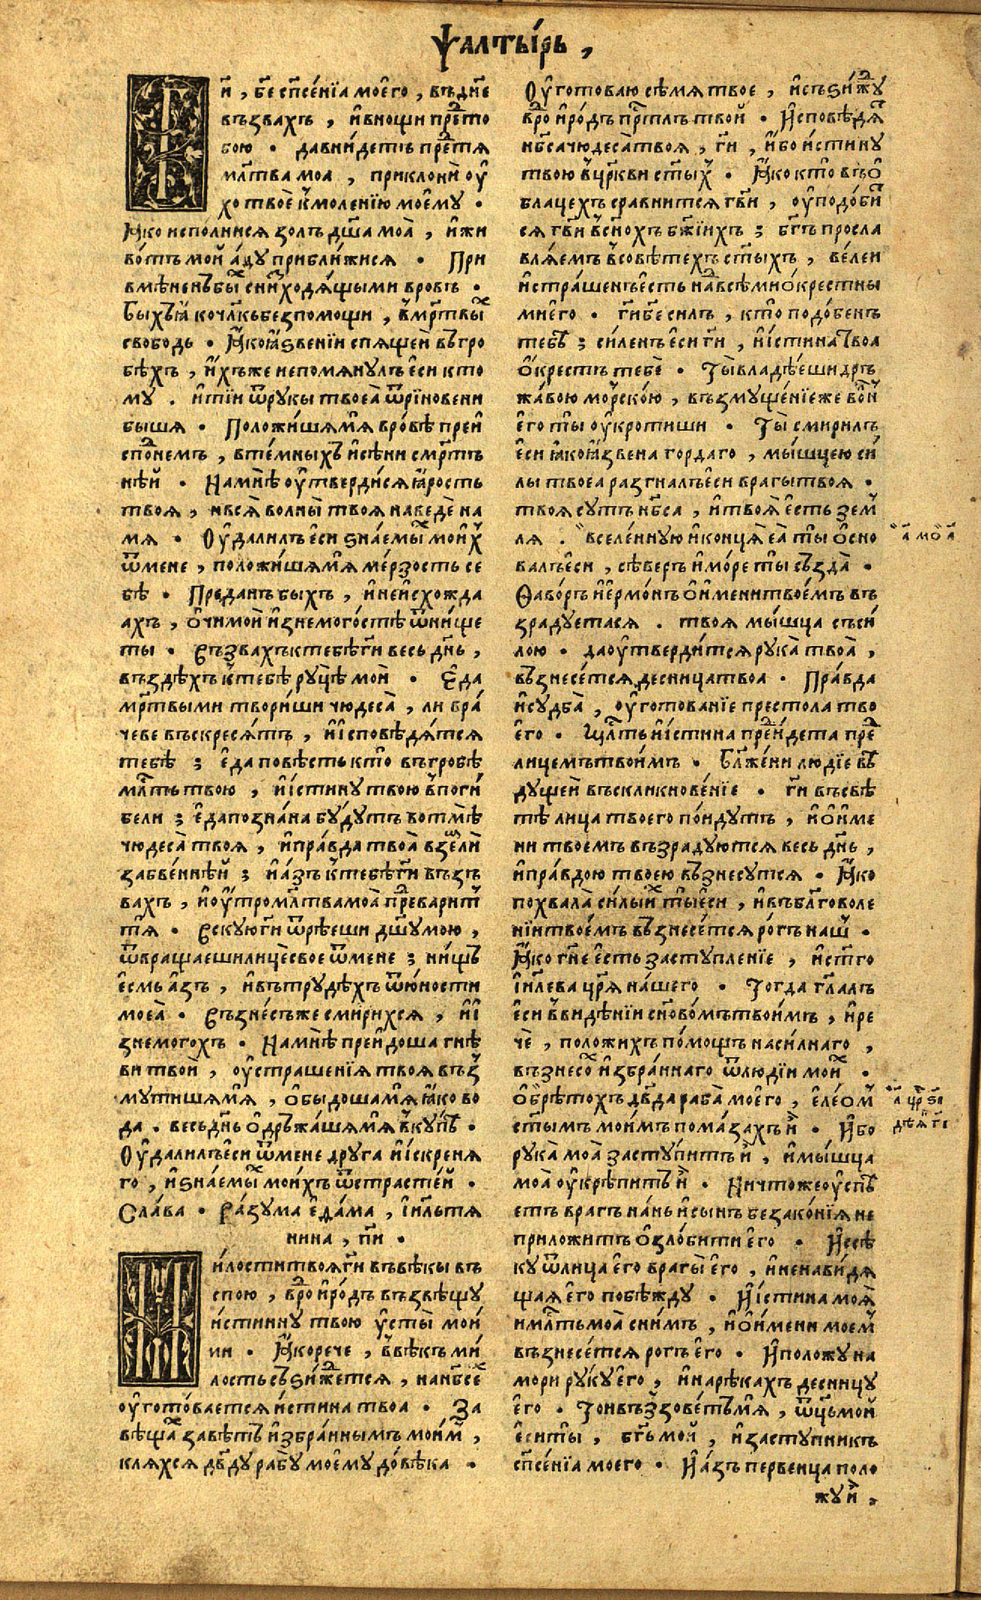 Ѱалты́рь ,
Г҃и , бе сп҃се́нїа моего̀ , въ дн҃е
възвахъ , и҆ в нощи пре́д то
бою • да вни́детъ пре́д тя
мл҃тва моа , приклони̂ оу҆́
хо твоѐ к̾ моле́нїю моемꙋ̀ •
Ꙗ҆ко испо́лнися ѕолъ дш҃а моа̀ , и҆ жи
во́тъ мой а҆́дꙋ прибли́жися • При
вмѣне́нъ бы́х с ни́зходя́щыми в ровъ •
Бы́хъ ꙗ҆́ко чл҃къ без помощи , в̾ мр҃твы́х
свободь • Ꙗ҆́ко ꙗ҆́звенїи спящеи въ гро
бѣхъ , и҆́хъ же не помянꙋлъ е҆си̂ кто
мꙋ . и҆ тїи ѿ рꙋкы твоеа̀ ѿри́новени
бы́шя • Положи́шя мя̀ в ро́вѣ преи҆
спо́днемъ , в те́мныхъ и҆ сѣни сме́ртъ
нѣй • На мнѣ оу҆тверди́ся ꙗ҆́рость
твоя̀ , и вся̀ во́лны̀ твоя̀ наведѐ на
мя • Оу҆дали́лъ е҆си̂ ѕна́емы́х мои́х
ѿ мене , положи́шя мя̀ ме́рзость се
бѣ • Преданъ бы́хъ , и҆ не и҆схожда
ахъ , о҆чи мои̂ и҆знемого́стѣ ѿ ни́ще
ты • Възвахъ к тебѣ г҃и весь дн҃ь ,
въздѣхъ к̾ тебѣ рꙋ́цѣ мои̂ • Е҆да
мр҃твыми твори́ши чюдеса̀ , ли вра́
чеве въскреся́тъ , и҆ и҆сповѣдя́тся
тебѣ ; е҆да повѣсть кто̀ въ гробѣ
мл҃ть твою , и҆ и҆́стинꙋ твою̀ в̾ поги́
бели ; е҆да позна́на бꙋ́дꙋтъ во тмѣ̀
чюдеса̀ твоя , и҆ пра́вда твоа̀ в зе́мли̂
забве́ннѣй ; и҆ а҆́зъ к̾ тебѣ г҃и възъ
вахъ , и҆ оу҆́тро мл҃тва моа̀ предварит
тя̀ • Въскꙋю г҃и ѿрѣ́еши дш҃ꙋ мою̀ ,
ѿвраща́еши лицѐ свое ѿ мене ; ни́щъ
е҆смь а҆́зъ , и҆ въ трꙋдѣ́хъ ѿ ю҆ности
моеа̀ • Възне́съ же смири́хся , и҆ и҆
знемого́хъ • На мнѣ преи҆доша гнѣ
ви твои̂ , оу҆страше́нїя твоя въз
мꙋти́шя мя̀ , о҆быдоша мя̀ ꙗ҆́ко во
да . весь дн҃ь о҆дръжа́шя мя̀ вкꙋпѣ̀ •
Оу҆дали́лъ е҆си ѿ мене дрꙋга и҆ и҆́скреня
го , и҆ ѕна́емы́х мои́хъ ѿ страсте́й •
Сла́ва • Ра́зꙋма е҆да́ма , і҆и҃лътя
нина , п҃и •
Ми́лости твоя̀ г҃и въ вѣкы въ
спою̀ , в ро́д и҆ ро́дъ възвѣщꙋ̀
и҆́стиннꙋ твою̀ оу҆сты̀ мои́
ми • Ꙗ҆́ко рече , в̾ вѣкъ ми́
лость съѕи́жется , на нб҃сѐх
оу҆гото́вается и҆́стина твоа • За
вѣща́х завѣтъ и҆збра́ннымъ мои́м ,
кля́хся дв҃дꙋ рабꙋ̀ моемꙋ до вѣка •
Оу҆готоваю сѣмя твое , и҆ съѕи́ждꙋ
в ро́д и҆ ро́дъ пр҃толъ твой • И҆сповѣдя́т
нб҃са чюдеса̀ твоя̀ , г҃и , и҆́бо и҆́стинꙋ
твою̀ в̾ цр҃кви ст҃ы́х • Ꙗ҆ко кто̀ въ о҆́
блацехъ сравни́тся гв҃и , оу҆подо́би́т
ся гв҃и в̾ сн҃охъ бж҃їихъ ; бг҃ъ просла
вля́емъ в̾ совѣ́тѣхъ ст҃ыхъ , ве́леи
и҆ стра́шенъ е҆сть на́д всѣми о҆крестны
ми е҆го • г҃и бе си́лъ , кто̀ подо́бенъ
тебѣ̀ ; си́ленъ е҆си̂ г҃и , и҆ и҆́стина твоа
о҆́крестъ тебѐ • Ты̀ влад҆ѣ́еши дръ
жа́вою мо́рско́ю , възмꙋще́нїе же во́лн
е҆го ты̀ оу҆кротиши • Ты̀ смири́лъ
е҆си̂ ꙗ҆́ко ꙗ҆́звена гордаго , мы́шцею си́
лы твоеа разгна́лъ е҆си врагы̀ твоя •
твоя сꙋ́тъ нб҃са , и҆ твоя̀ е҆́сть зем
ля . вселе́ннꙋю и҆ конця̀ еа̀ ты̀ о҆сно
ва́лъ е҆си , сѣ́веръ и҆ мо́ре ты̀ създа̀ •
Ѳаво́ръ и҆ е҆рмо́нъ о҆ и҆мени твое́мъ въ
зра́дꙋетася . твоя̀ мы́шца съ си́
лою • да оу҆тверди́тся рꙋка̀ твоа̀ ,
възнесе́тся десни́ца твоа • Пра́вда
и҆ сꙋдба̀ , оу҆готованїе престола тво
его • Мл҃ть и҆ и҆́стина преи҆́дета пре́д
лице́мъ твои́мъ • Бл҃же́ни лю́дїе вѣ̀
дꙋщеи въскликнове́нїе • г҃и въ свѣ
тѣ лица твоего по́идꙋтъ , и҆ о҆ и҆ме
ни твоемъ възра́дꙋются весь дн҃ь ,
и҆ пра́вдою твоею възнесꙋ́тся • Ꙗ҆ко
похвала̀ силы́ и҆́х ты̀ е҆си , и҆ въ бл҃говоле
нїи твое́мъ възнесе́тся ро́гъ наш̀ •
Ꙗ҆ко гн҃е е҆сть застꙋпле́нїе , и҆ ст҃го
і҆и҃лева цр҃я на́шего • Тогда гл҃алъ
е҆си в̾ видѣ́нїи сн҃ово́мъ твои́мъ , и҆ ре
чѐ , положи́хъ по́мощь на си́лнаго ,
възнесо́х и҆збра́ннаго ѿ лю́дїи мои́х •
о҆брѣто́хъ дв҃да раба̀ моего , е҆ле́ом
ст҃ымъ мои́мъ пома́захъ и҆̀ • И҆бо
рꙋка моа̀ застꙋпи́тъ и҆̀ , и҆ мы́шца
моа̀ оу҆крѣпи́тъ и҆̀ • Ничто́же оу҆спѣ̀
етъ врагъ на́нь и҆ сы́нъ безако́нїя не
приложи́тъ о҆зло́бити е҆го • И҆ ссѣ
кꙋ ѿ лица е҆го врагы̀ е҆го , и҆ ненави́дя
щая е҆го побѣ́ждꙋ • И҆ и҆́стина моя̀
и мл҃ть моа̀ с ни́мъ , и҆ о҆ и҆́мени мое́м
възнесе́тся ро́гъ е҆го • И҆ положꙋ̀ на
мори рꙋкꙋ̀ е҆го , и҆ на рѣка́хъ десни́цꙋ
е҆го • То́и въззове́тъ мя̀ , ѿц҃ь мой
е҆си ты̀ , бг҃ъ мой , и҆ застꙋ́пникъ
сп҃се́нїа моего • И҆ а҆́зъ пе́рвенца поло
жꙋ и҆̀ ,